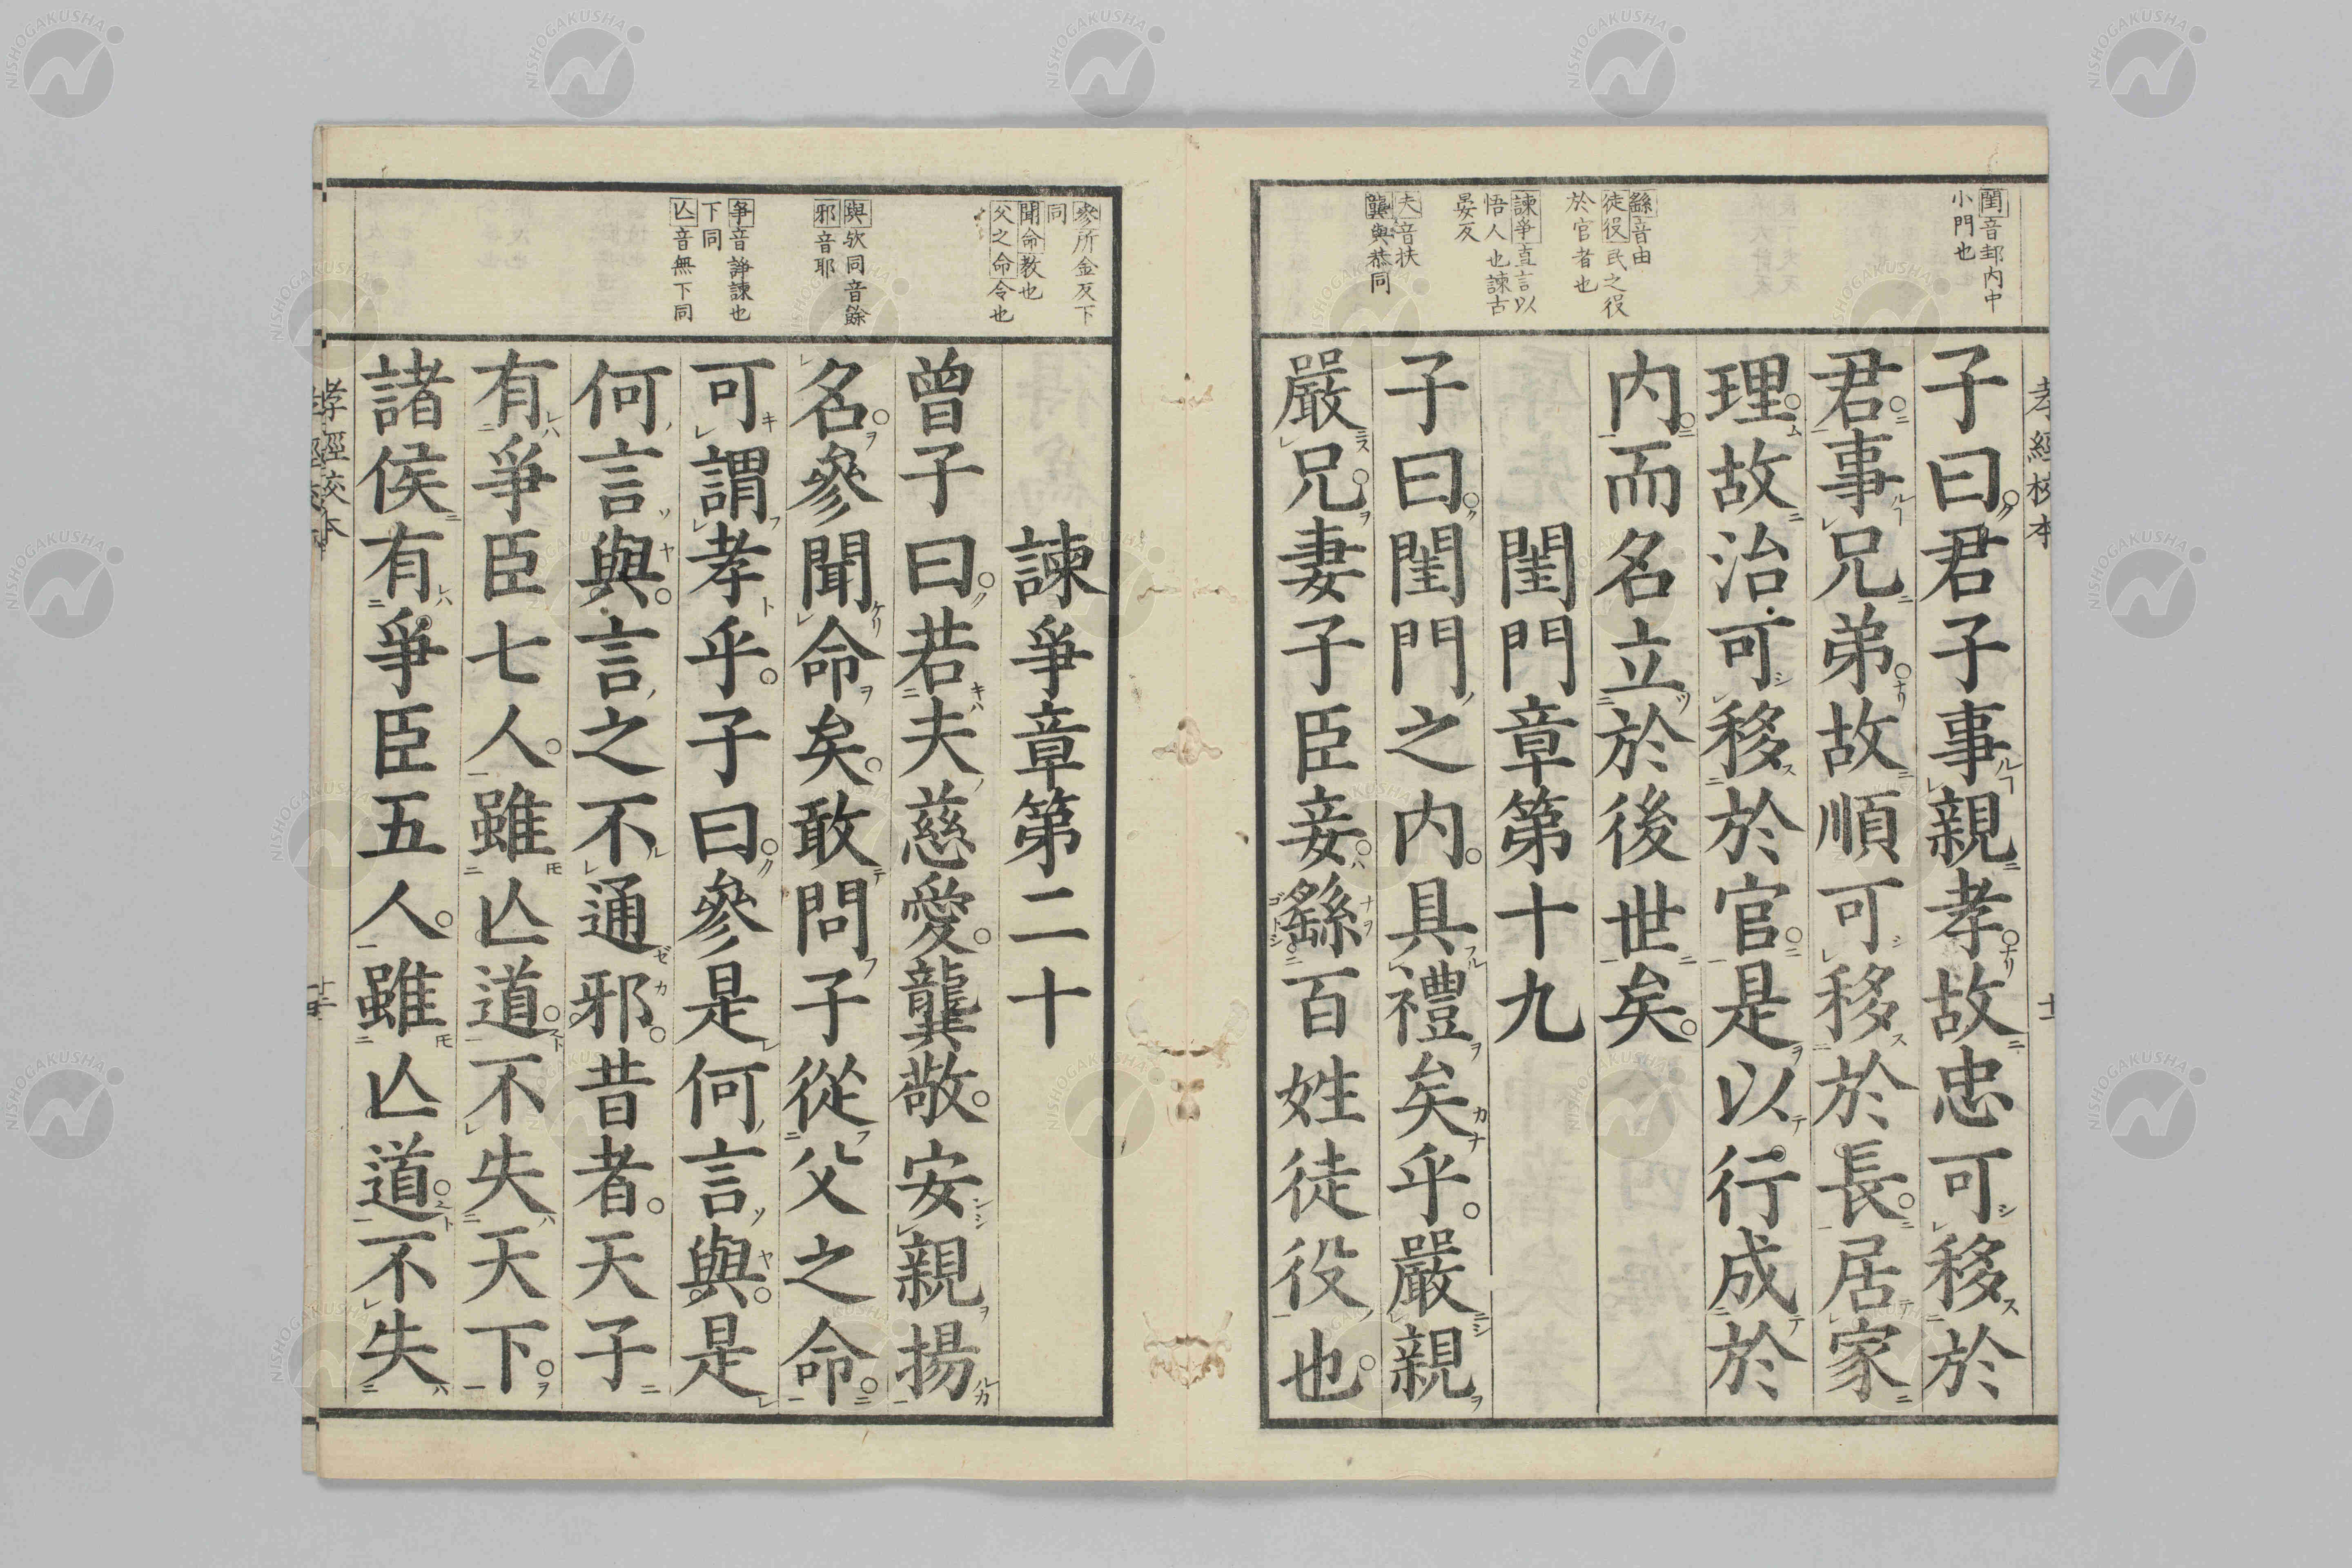 孝經校本
閨音邽内中
小門也
繇音由
徒役民之役
於官者也
諫爭直言以
悟人也諫古
晏反
夫音扶
龔與恭同
子曰君子事親孝故忠可移於
君事兄弟故順可移於長居家
理故治可移於官是以行成於
内而名立於後世矣
閨門章第十九
子曰閨門之内具禮矣乎嚴親
嚴兄妻子臣妾繇百姓徒役也
參所金反下
同
聞命教也
父之命令也
與欤同音餘
邪音耶
爭音諍諫也
下同
亾音無下同
諫爭章第二十
曾子曰若夫慈愛龔敬安親揚
名參聞命矣敢問子從父之命
可謂孝乎子曰參是何言與是
何言與言之不通邪昔者天子
有爭臣七人雖亾道不失天下
諸侯有爭臣五人雖亾道不失
孝經校本
NISHOGAKUSHA